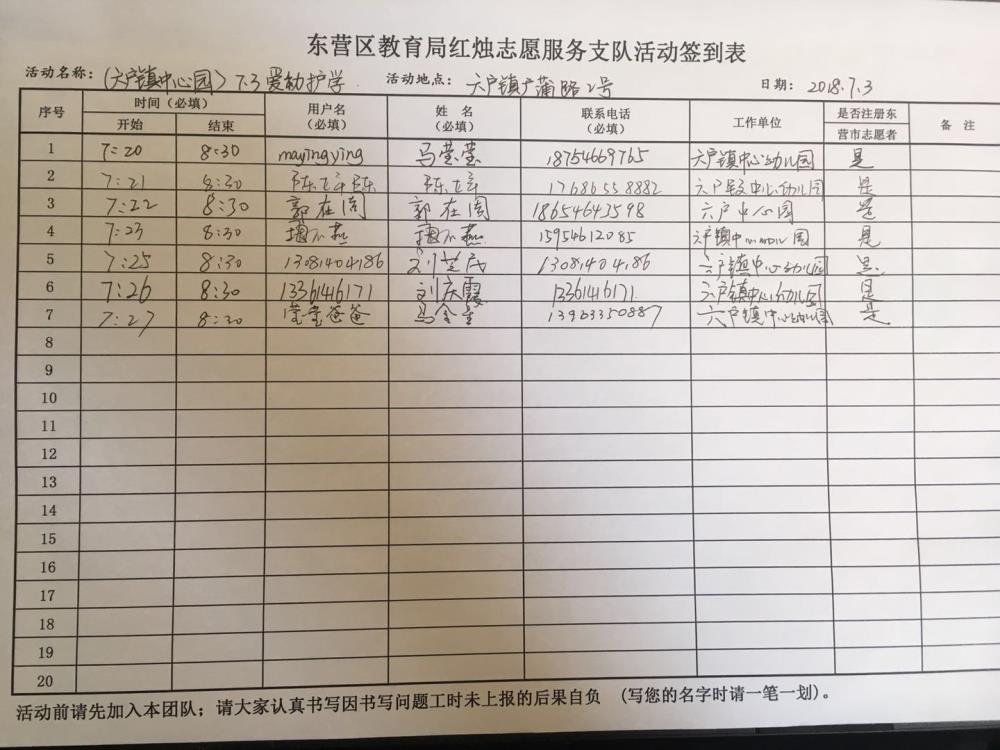 东营区教育局红烛志愿服务支队活动签到表
活动名称：（六户镇中心园）7.3爱幼护学 活动地点：六户镇广蒲路2号 日期：2018.7.3
序号 时间（必填） 用户名（必填） 姓名（必填） 联系电话（必填） 工作单位 是否注册东营市志愿者 备注
开始 结束
1 7:20 8:30 mayingying 马莹莹 18754669765 六户镇中心幼儿园 是
2 7:21 8:30 17686558882 六户镇中心幼儿园 是
3 7:22 8:30 郭在阁 郭在阁 18654643598 六户中心园 是
4 7:23 8:30 15954612085 六户镇中心幼儿园 是
5 7:25 8:30 13081404186 刘芝民 13081404186 六户镇中心幼儿园 是
6 7:26 8:30 13361416171 刘庆霞 13361416171 六户镇中心幼儿园 是
7 7:27 8:30 莹莹爸爸 马金 13963350887 六户镇中心幼儿园 是
8
9
10
11
12
13
14
15
16
17
18
19
20
活动前请先加入本团队；请大家认真书写因书写问题工时未上报的后果自负 （写您的名字时请一笔一划）。